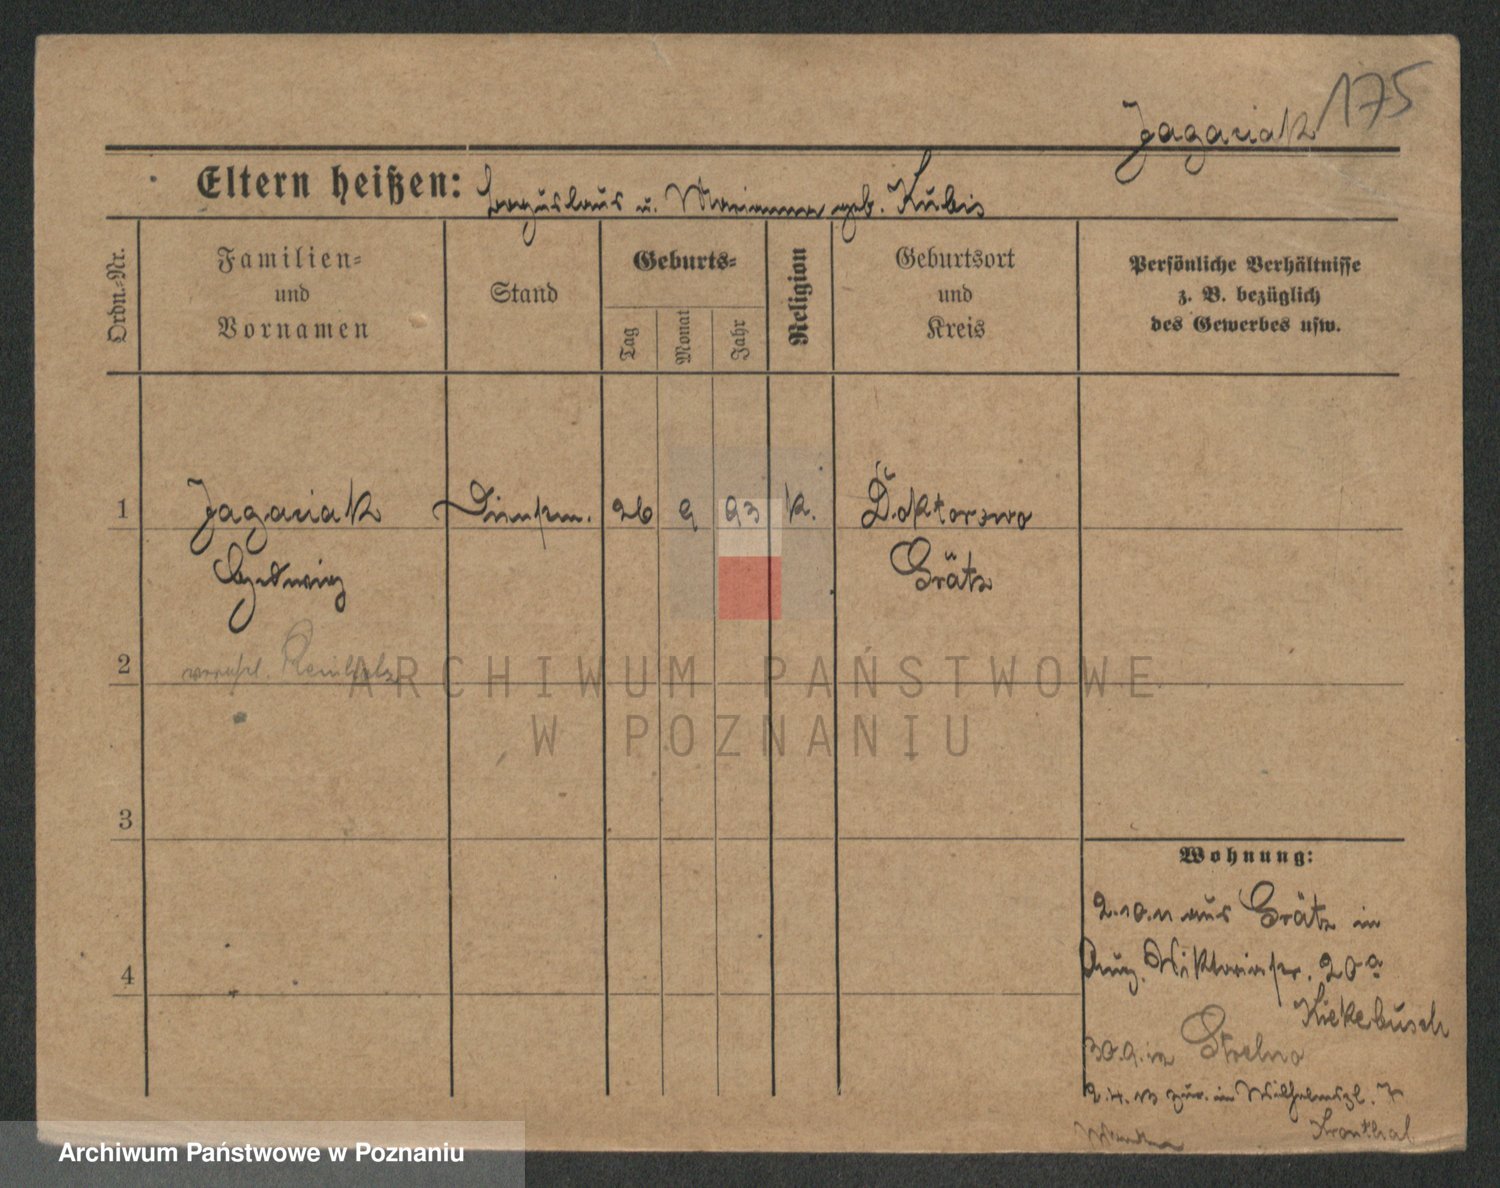 175
Jagaciak
Eltern heißen: u. Marianna geb. Kubis
Ordn.-Nr.
Familien-
und
Vornamen
Stand
Geburts-
Tag
Monat
Jahr
Religion
Geburtsort
und
Kreis
Persönliche Verhältnisse
z. B. bezüglich
des Gewerbes usw.
1 Jagaciak Dienstm. 26 9 93 k. Doktorowo
Hedwig Grätz
2 verehel.
3
4
Wohnung:
2.10.11 aus Grätz in
Aug. Viktoriastr. 20a
Kiekebusch
30.9.12 Strelno
2.4.13 zur. in Wilhelmspl. 7
Kronthal
ARCHIWUM PAŃSTWOWE
W POZNANIU
Archiwum Państwowe w Poznaniu